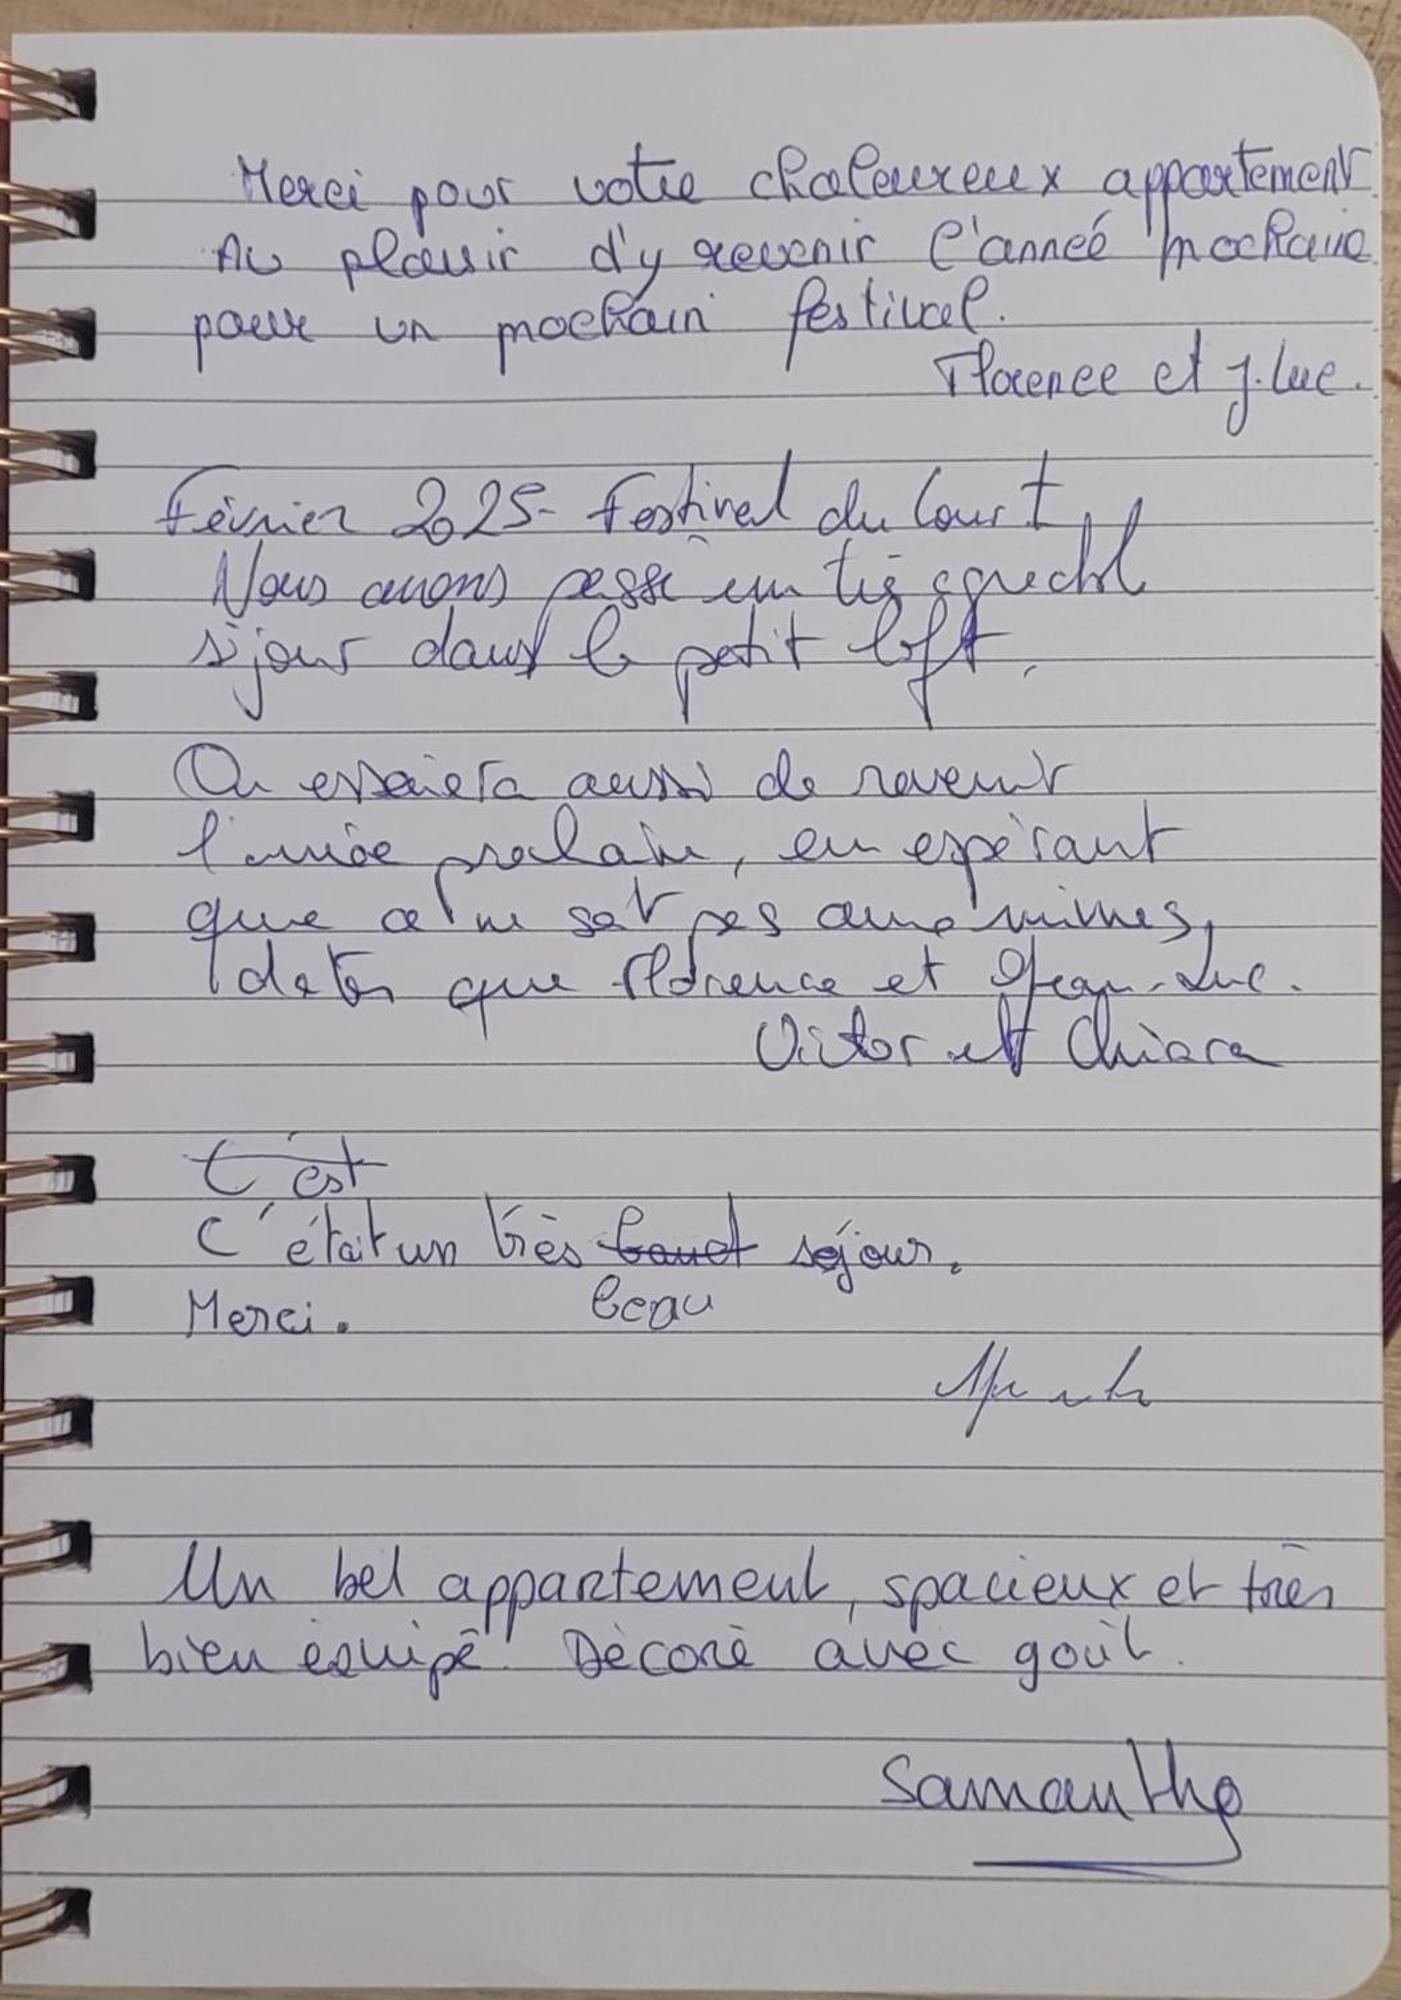 Merci pour votre chaleureux appartement
Au plaisir d'y revenir l'année prochaine
pour un prochain festival.
Florence et J.Luc.
Février 2025 - Festival du Court
Nous avons passé un très agréable
séjour dans le petit loft.
On essaiera aussi de revenir
l'année prochaine, en espérant
que ce ne soit pas aux mêmes
dates que Florence et Jean-Luc.
Victor et Chiara
C'est
C'était un très séjour.
Merci. beau
Un bel appartement, spacieux et très
bien équipé. Décoré avec goût.
Samantha